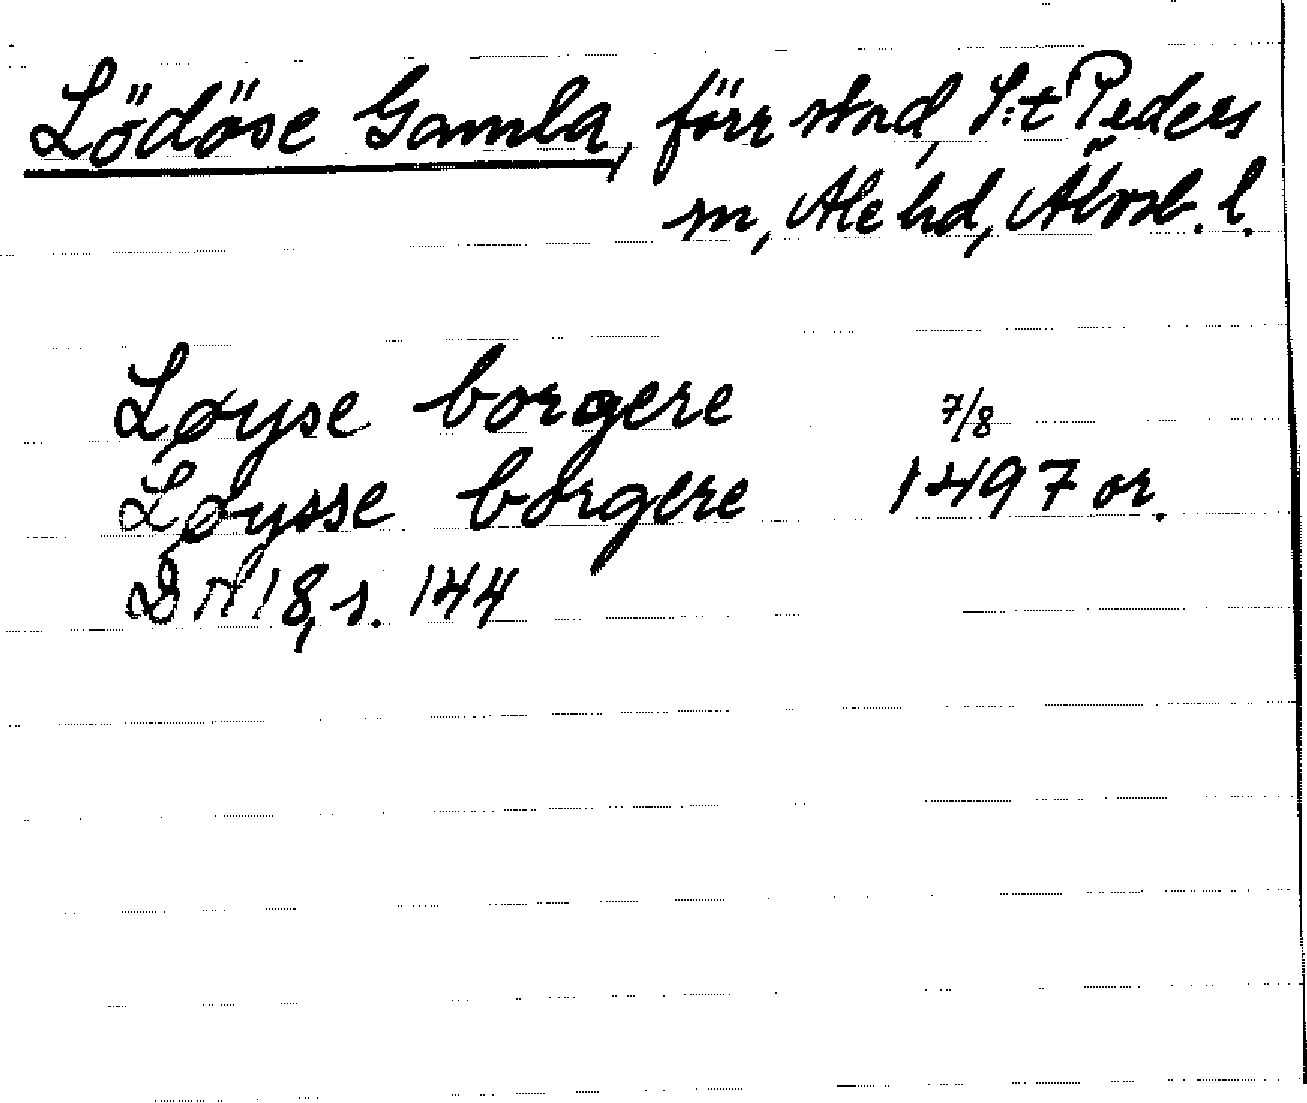 Lödöse Gamla, förr stad, S:t Peders
sn, Ale hd, Älvsb. l.
Løyse borgere 7/8
Løysse borgere 1497 or.
DN 18, s. 144